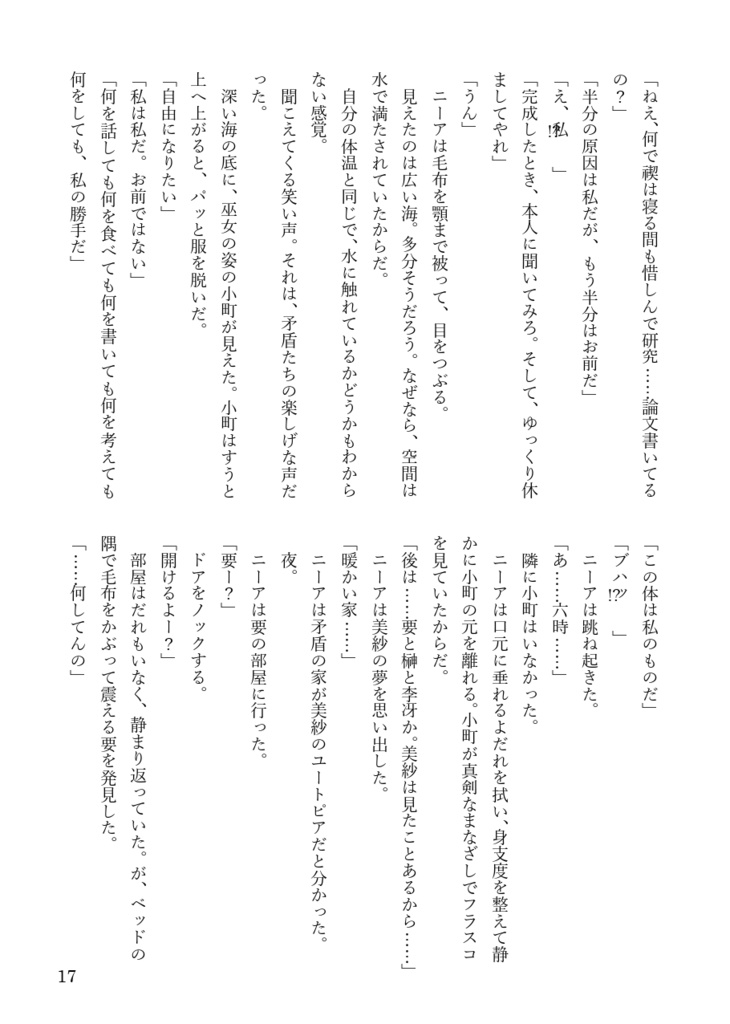 「ねえ、何で禊は寝る間も惜しんで研究……論文書いてる
の？」
「半分の原因は私だが、もう半分はお前だ」
「え、私!?」
「完成したとき、本人に聞いてみろ。そして、ゆっくり休
ましてやれ」
「うん」
　ニーアは毛布を顎まで被って、目をつぶる。
　見えたのは広い海。多分そうだろう。なぜなら、空間は
水で満たされていたからだ。
　自分の体温と同じで、水に触れているかどうかもわから
ない感覚。
　聞こえてくる笑い声。それは、矛盾たちの楽しげな声だ
った。
　深い海の底に、巫女の姿の小町が見えた。小町はすうと
上へ上がると、パッと服を脱いだ。
「自由になりたい」
「私は私だ。お前ではない」
「何を話しても何を食べても何を書いても何を考えても
何をしても、私の勝手だ」
「この体は私のものだ」
「ブハッ!?」
　ニーアは跳ね起きた。
「あ……六時……」
　隣に小町はいなかった。
　ニーアは口元に垂れるよだれを拭い、身支度を整えて静
かに小町の元を離れる。小町が真剣なまなざしでフラスコ
を見ていたからだ。
「後は……要と榊と李冴か。美紗は見たことあるから……」
　ニーアは美紗の夢を思い出した。
「暖かい家……」
　ニーアは矛盾の家が美紗のユートピアだと分かった。
　夜。
　ニーアは要の部屋に行った。
「要ー？」
　ドアをノックする。
「開けるよー？」
　部屋はだれもいなく、静まり返っていた。が、ベッドの
隅で毛布をかぶって震える要を発見した。
「……何してんの」
17